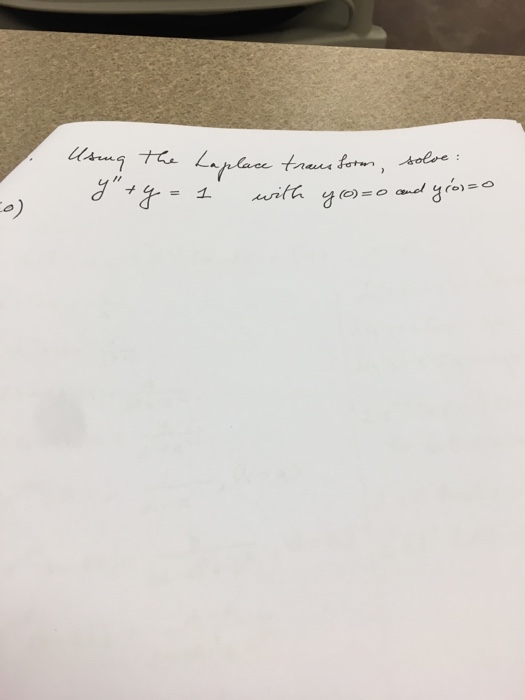 . Using the Laplace transform, solve:
y" + y = 1 with y(0)=0 and y'(0)=0
0)